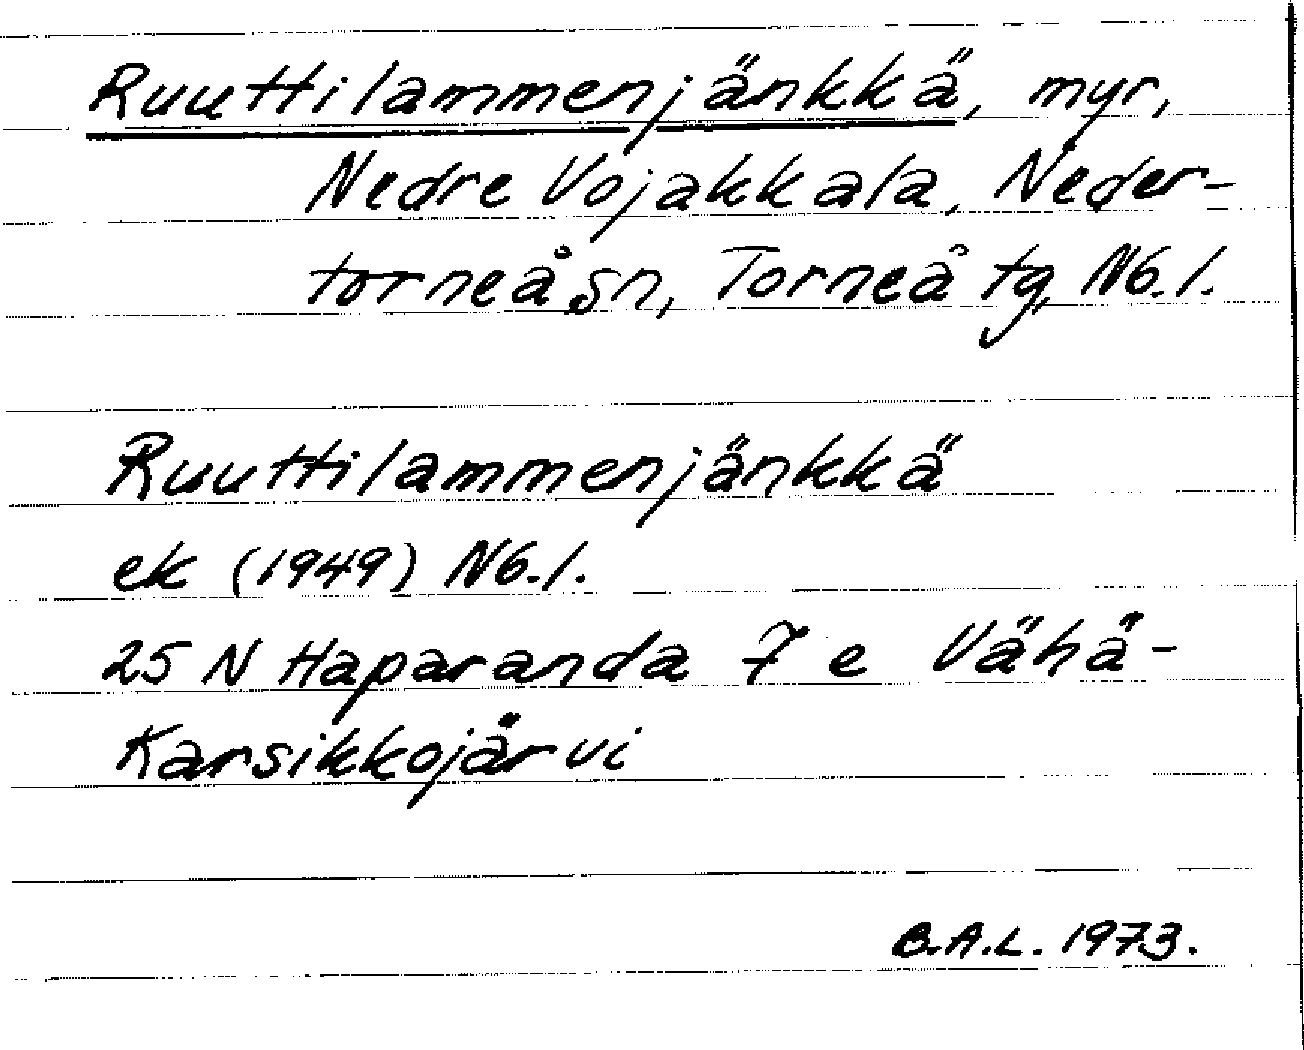 Ruuttilammenjänkkä, myr,
Nedre Vojakkala, Neder-
torneå sn, Torneå tg, Nb.l.
Ruuttilammenjänkkä
ek (1949) Nb.l.
25 N Haparanda 7 e Vähä-
Karsikkojärvi
B.A.L. 1973.